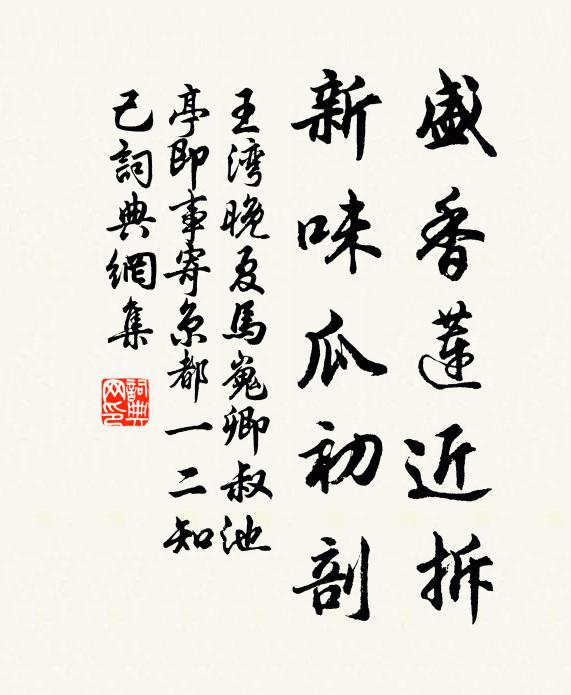 盛香蓮近拆
新味瓜初剖
王灣晚夏馬嵬卿叔池
亭即事寄京都一二知
己詞典網集
詞典
网印